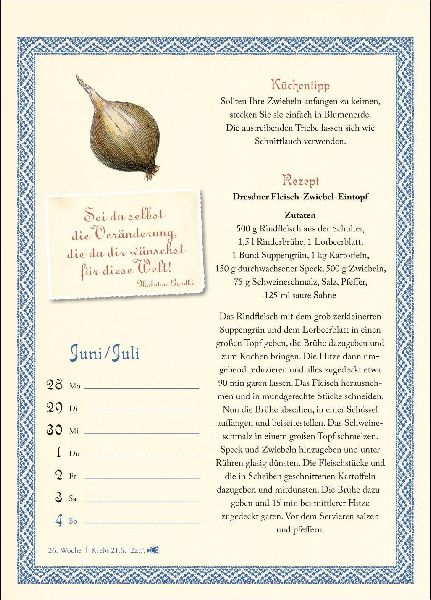 Küchentipp
Sollten Ihre Zwiebeln anfangen zu keimen,
stecken Sie sie einfach in Blumenerde.
Die austreibenden Triebe lassen sich wie
Schnittlauch verwenden.
Sei du selbst
die Veränderung,
die du dir wünschst
für diese Welt!
Mahatma Gandhi
Rezept
Dresdner Fleisch-Zwiebel-Eintopf
Zutaten
500 g Rindfleisch aus der Schulter,
1,5 l Rinderbrühe, 1 Lorbeerblatt,
1 Bund Suppengrün, 1 kg Kartoffeln,
150 g durchwachsener Speck, 500 g Zwiebeln,
75 g Schweineschmalz, Salz, Pfeffer,
125 ml saure Sahne
Das Rindfleisch mit dem grob zerkleinerten
Suppengrün und dem Lorbeerblatt in einen
großen Topf geben, die Brühe dazugeben und
zum Kochen bringen. Die Hitze dann um-
gehend reduzieren und alles zugedeckt etwa
90 min garen lassen. Das Fleisch herausneh-
men und in mundgerechte Stücke schneiden.
Nun die Brühe abseihen, in einer Schüssel
auffangen und beiseitestellen. Das Schweine-
schmalz in einem großen Topf schmelzen.
Speck und Zwiebeln hinzugeben und unter
Rühren glasig dünsten. Die Fleischstücke und
die in Scheiben geschnittenen Kartoffeln
dazugeben und mitdünsten. Die Brühe dazu-
geben und 15 min bei mittlerer Hitze
zugedeckt garen. Vor dem Servieren salzen
und pfeffern.
Juni/Juli
28 Mo
29 Di
30 Mi
1 Do
2 Fr
3 Sa
4 So
26. Woche | Krebs 21.6.-22.7.